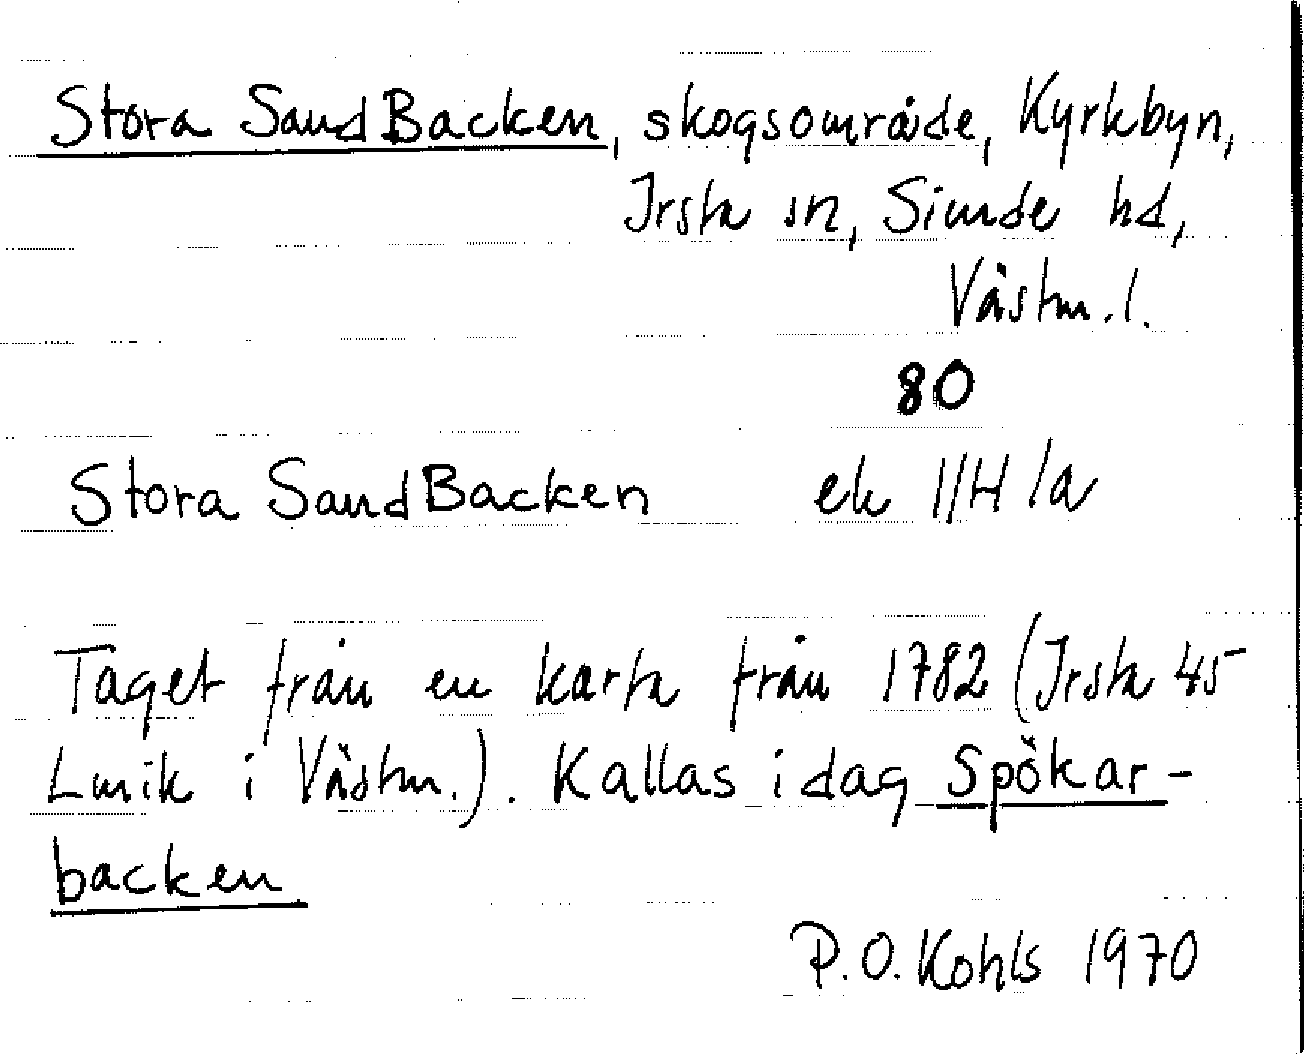 Stora SandBacken, skogsområde, Kyrkbyn,
Irsta sn, Siende hd,
Västm. l.
80
Stora SandBacken ek 11H 1a
Taget från en karta från 1782 (Irsta 45
Lmik i Västm.). Kallas idag Spökar-
backen
P.O. Kohls 1970